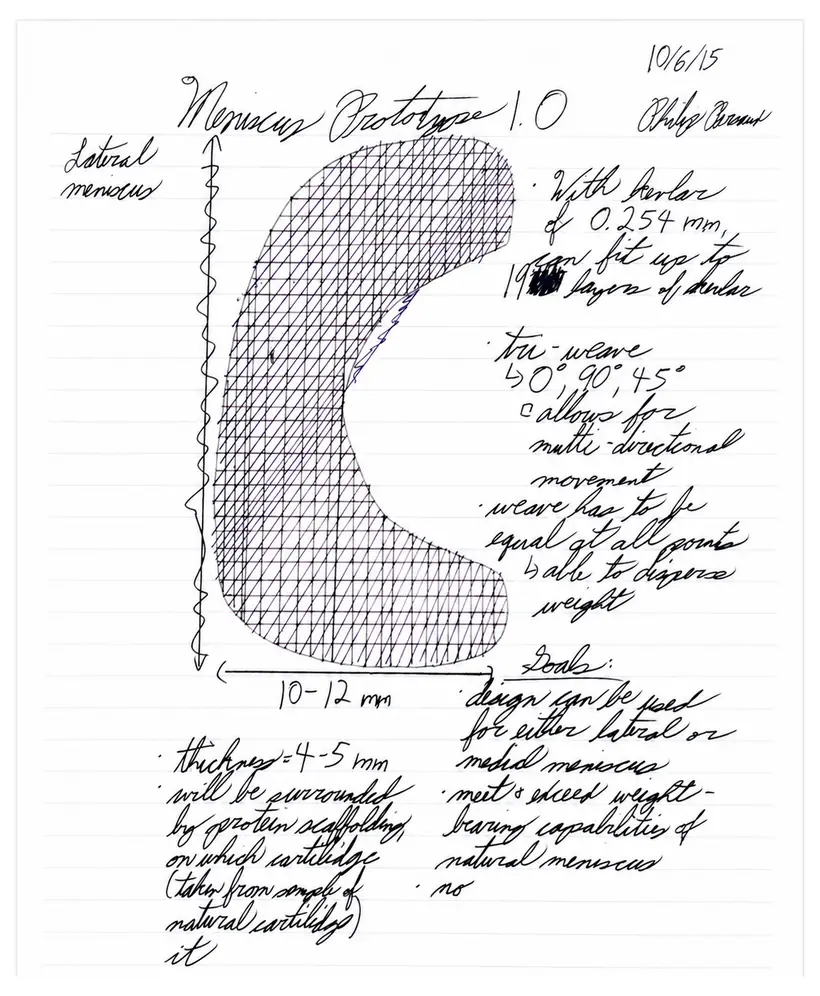 10/6/15
Meniscus Prototype 1.0
Philip
Lateral
meniscus
· With kevlar
of 0.254 mm,
can fit up to
19 layers of kevlar
· tri-weave
↳ 0°, 90°, 45°
▫ allows for
multi-directional
movement
· weave has to be
equal at all points
↳ able to disperse
weight
10-12 mm
· thickness = 4-5 mm
· will be surrounded
by protein scaffolding,
on which cartilidge
(taken from sample of
natural cartilidge)
it
Goals:
· design can be used
for either lateral or
medial meniscus
· meet & exceed weight-
bearing capabilities of
natural meniscus
· no